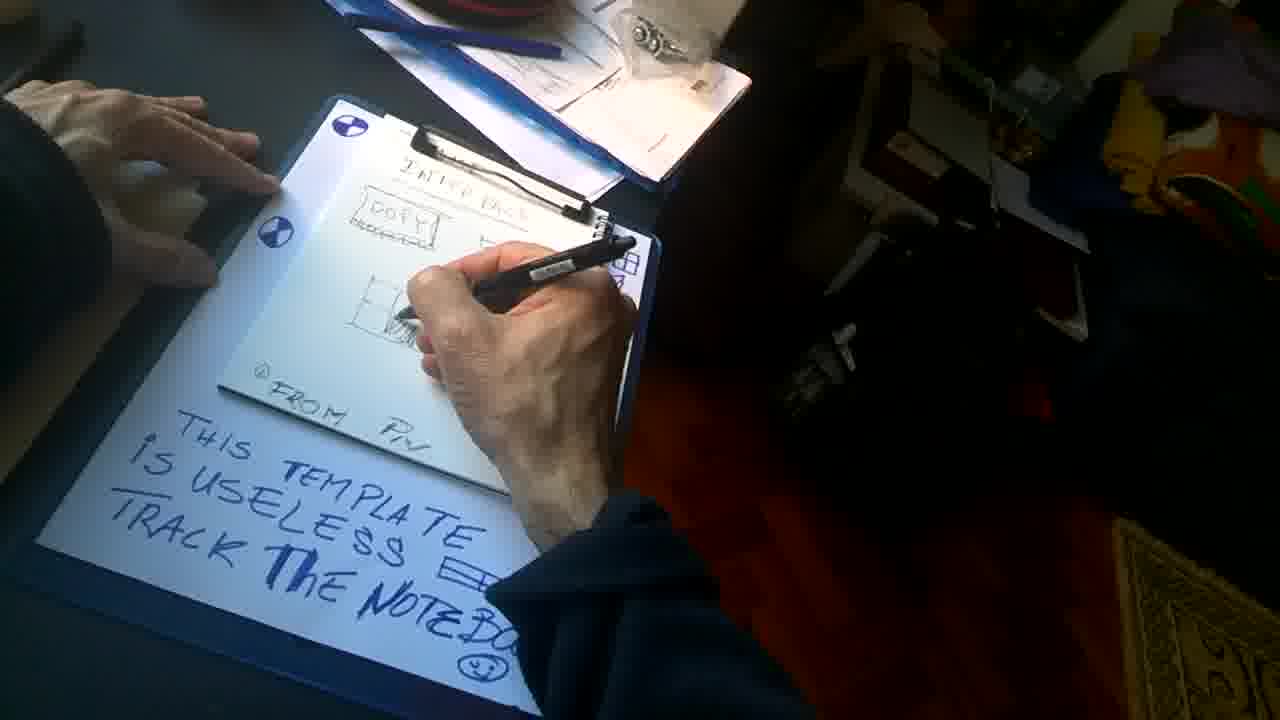 INTERFACE
COPY
FROM PIN
THIS TEMPLATE
IS USELESS
TRACK THE NOTEBO